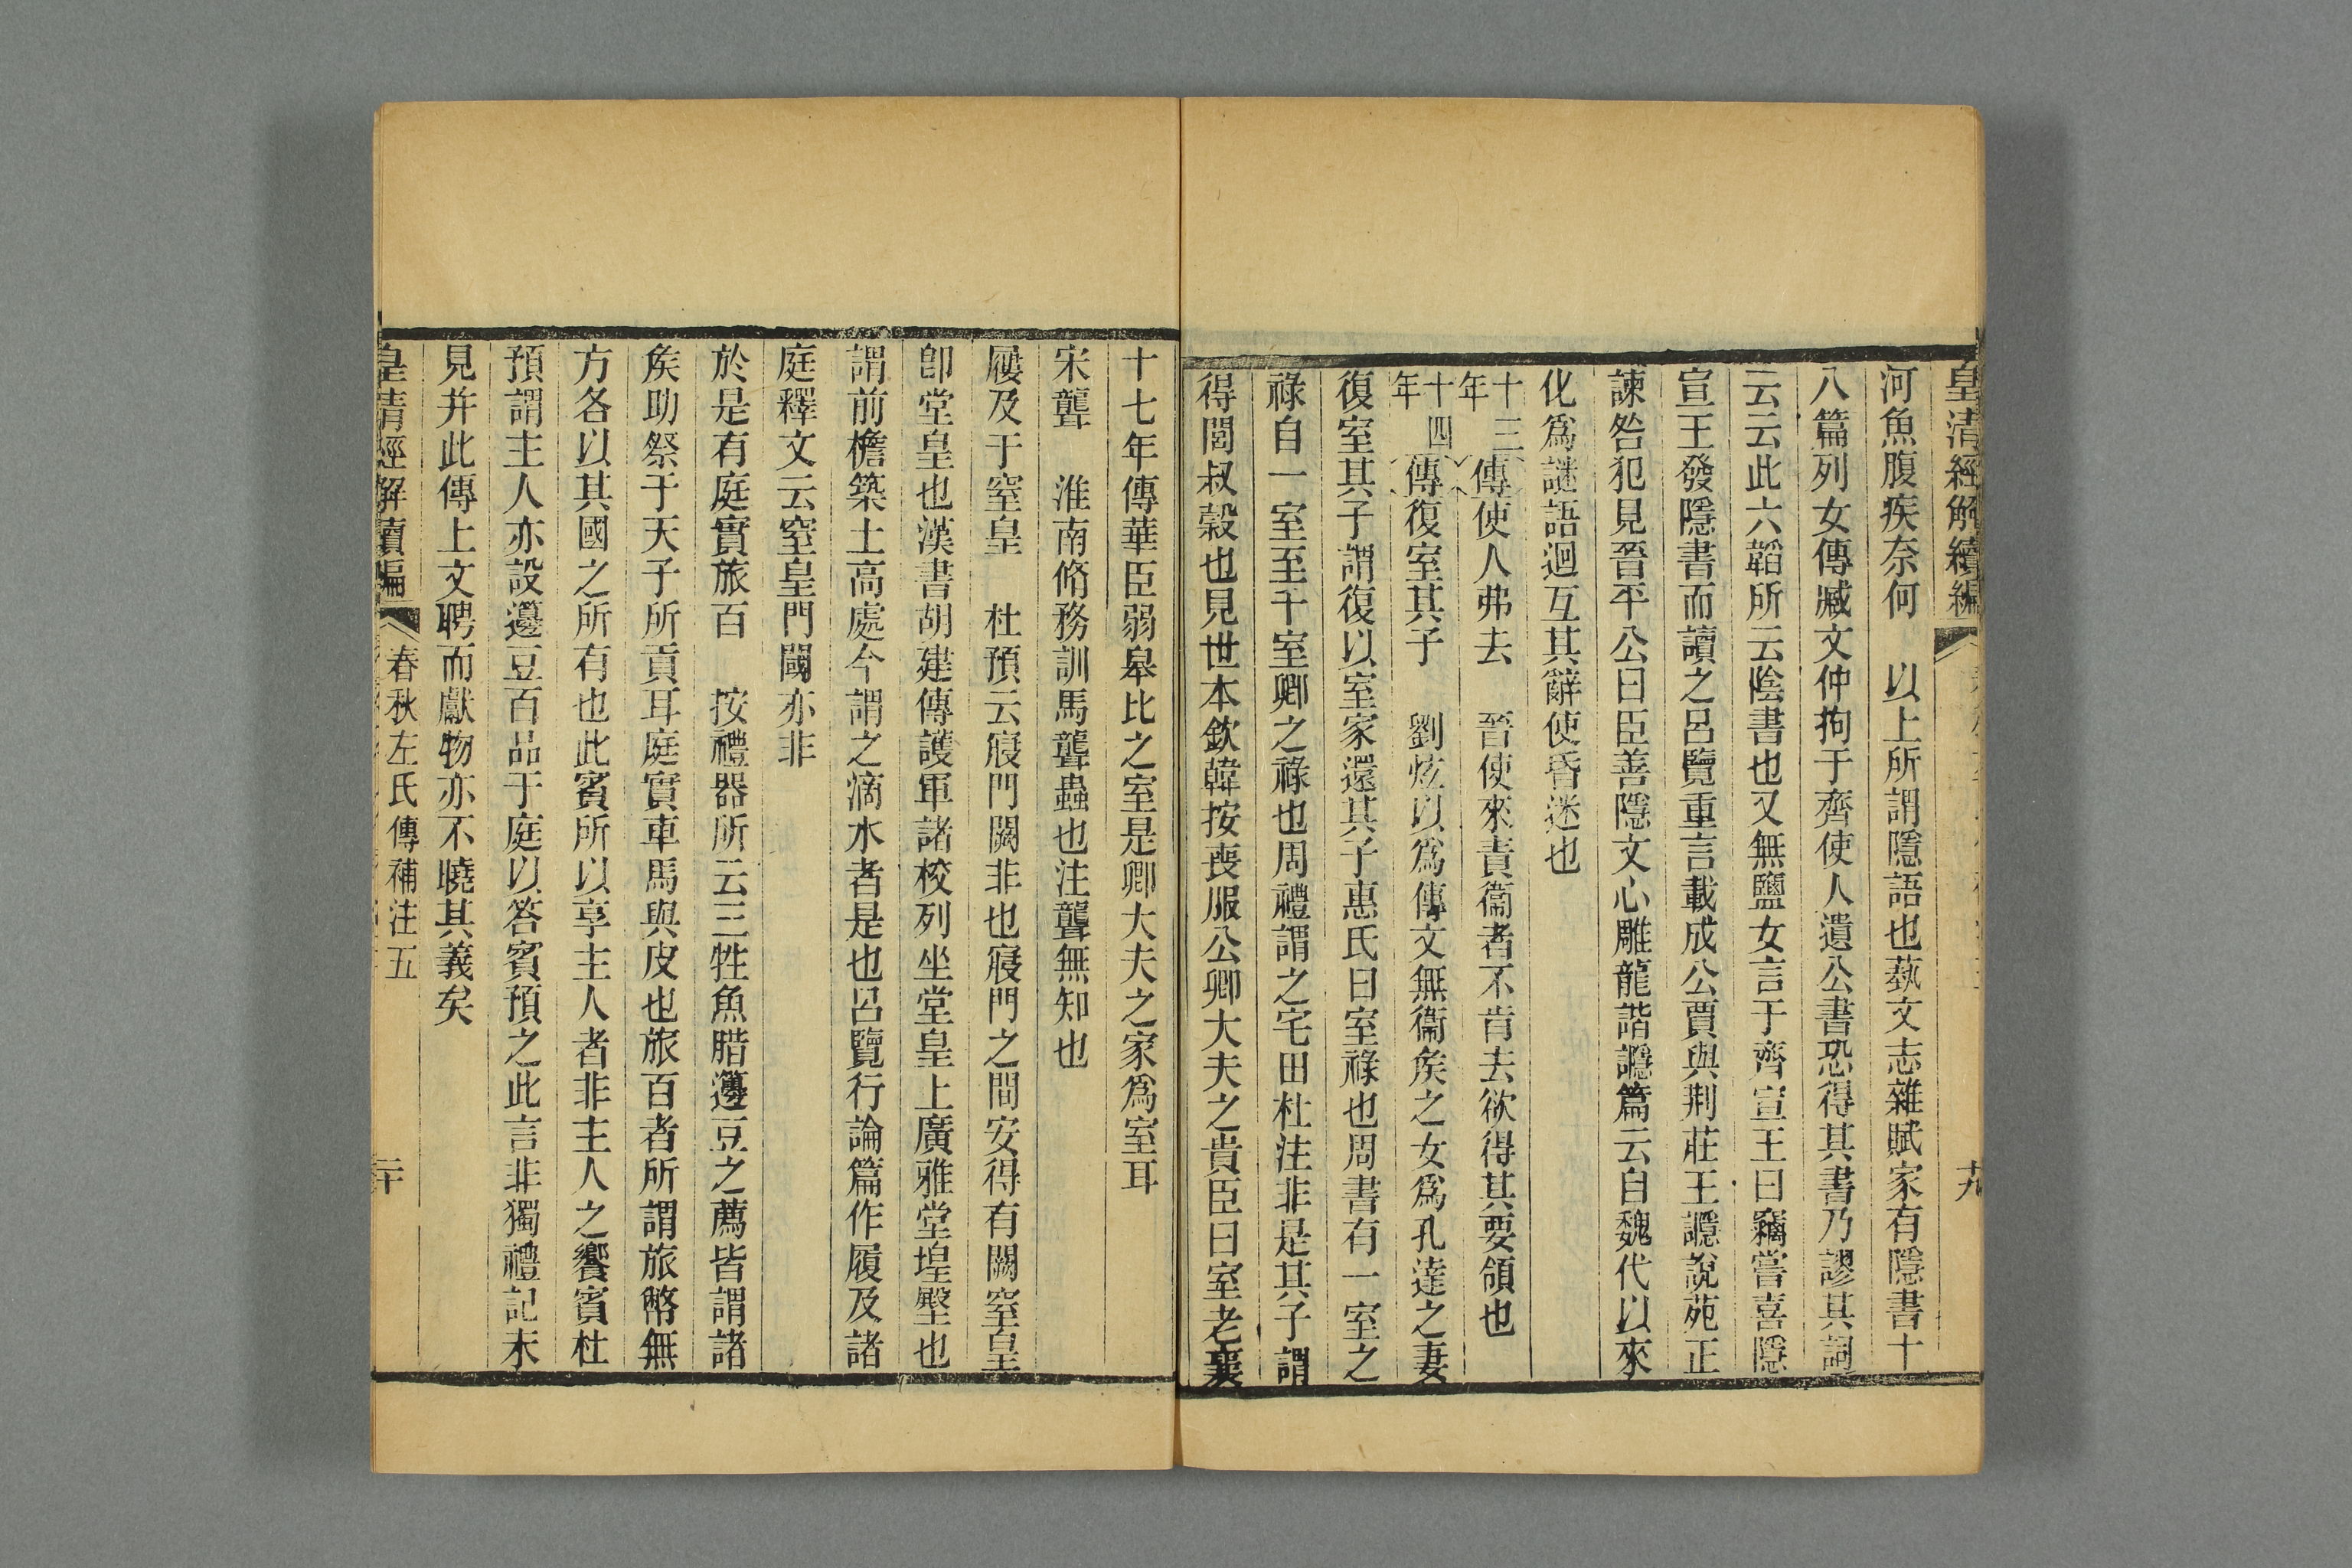 皇清經解續編
十九
河魚腹疾奈何　以上所謂隱語也藝文志雜賦家有隱書十
八篇列女傳臧文仲拘于齊使人遺公書恐得其書乃謬其詞
云云此六韜所云陰書也又無鹽女言于齊宣王曰竊嘗喜隱
宣王發隱書而讀之呂覽重言載成公賈與荆莊王讔說苑正
諫咎犯見晉平公曰臣善隱文心雕龍諧讔篇云自魏代以來
化爲謎語迴互其辭使昏迷也
十三年傳使人弗去　晉使來責衞者不肯去欲得其要領也
十四年傳復室其子　劉炫以爲傳文無衞矦之女爲孔達之妻
復室其子謂復以室家還其子惠氏曰室祿也周書有一室之
祿自一室至千室卿之祿也周禮謂之宅田杜注非是其子謂
得閭叔穀也見世本欽韓按喪服公卿大夫之貴臣曰室老襄
十七年傳華臣弱臯比之室是卿大夫之家爲室耳
宋聾　淮南脩務訓馬聾蟲也注聾無知也
屨及于窒皇　杜預云寢門闕非也寢門之間安得有闕窒皇
卽堂皇也漢書胡建傳護軍諸校列坐堂皇上廣雅堂堭壂也
謂前檐築土高處今謂之滴水者是也呂覽行論篇作履及諸
庭釋文云窒皇門闑亦非
於是有庭實旅百　按禮器所云三牲魚腊籩豆之薦皆謂諸
矦助祭于天子所貢耳庭實車馬與皮也旅百者所謂旅幣無
方各以其國之所有也此賓所以享主人者非主人之饗賓杜
預謂主人亦設籩豆百品于庭以答賓預之此言非獨禮記未
見并此傳上文聘而獻物亦不曉其義矣
皇清經解續編
春秋左氏傳補注五
二十